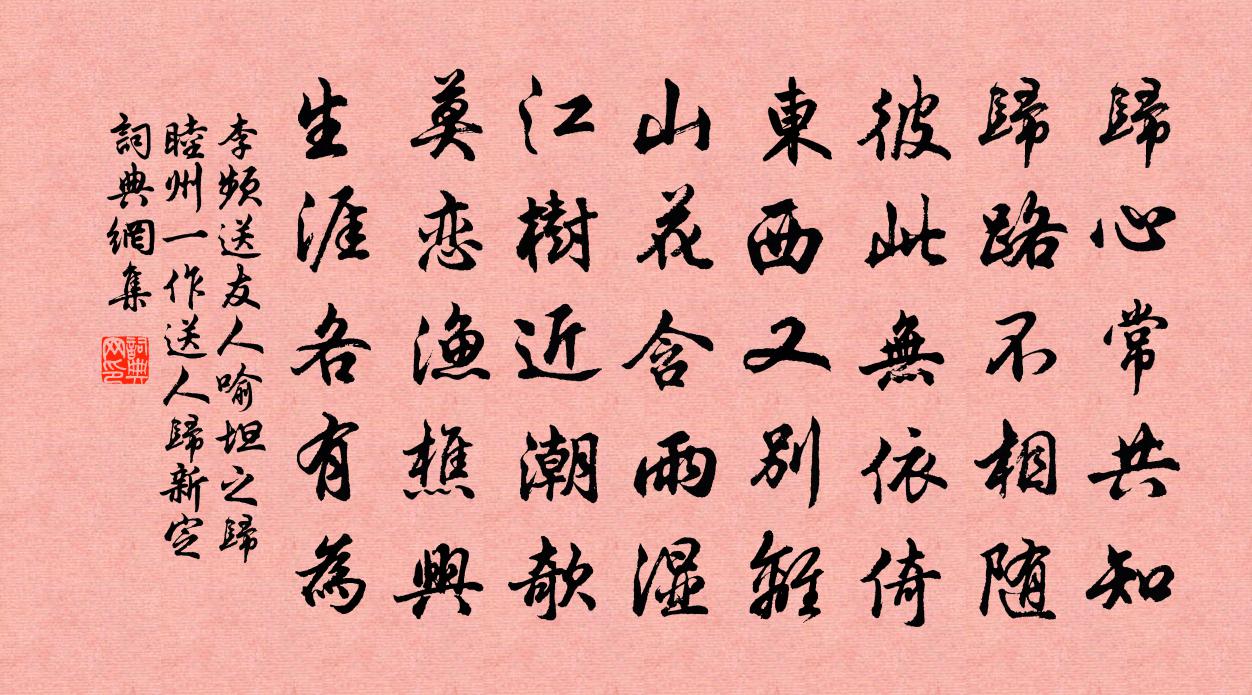 歸心常共知
歸路不相随
彼此無依倚
東西又別離
山花含雨湿
江樹近潮欹
莫恋漁樵興
生涯各有為
李频送友人喻坦之歸
睦州一作送人歸新定
詞典網集
詞典網印